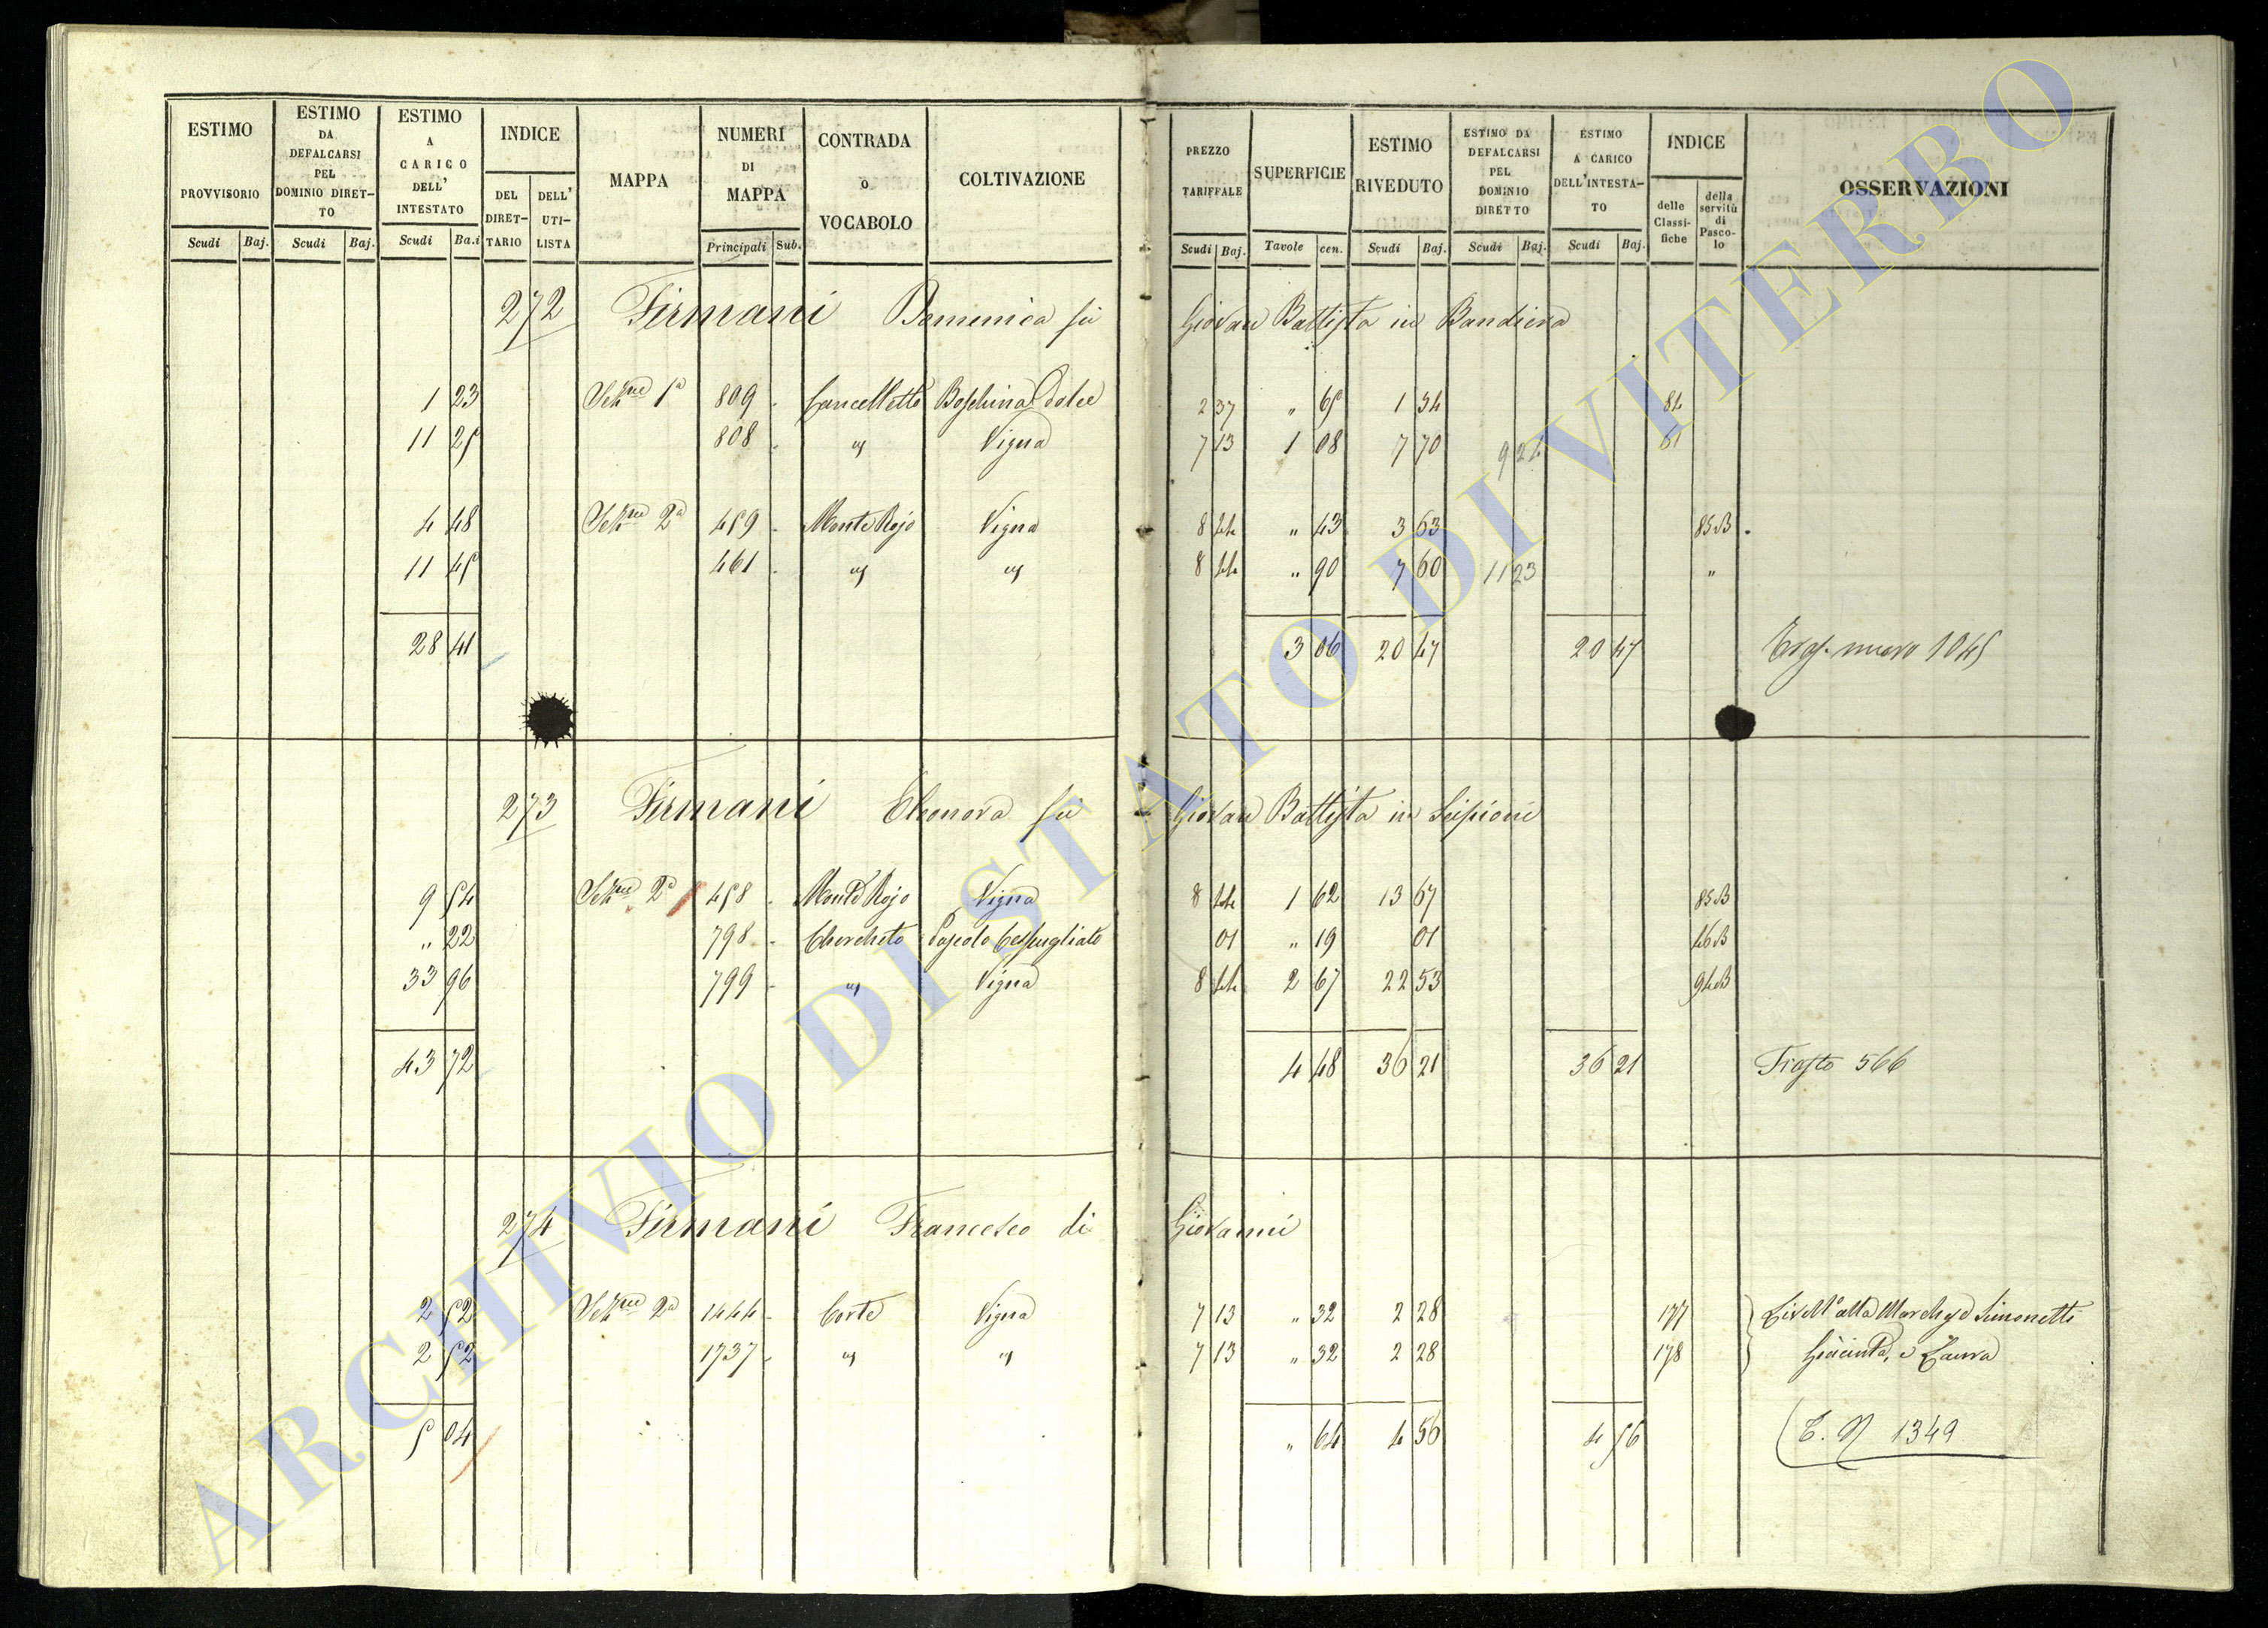 ESTIMO PROVVISORIO Scudi Baj.
ESTIMO DA DEFALCARSI PEL DOMINIO DIRET-TO Scudi Baj.
ESTIMO A CARICO DELL' INTESTATO Scudi Ba.i
INDICE DEL DIRET-TARIO DELL' UTI-LISTA
MAPPA
NUMERI DI MAPPA Principali Sub.
CONTRADA O VOCABOLO
COLTIVAZIONE
PREZZO TARIFFALE Scudi Baj.
SUPERFICIE Tavole cen.
ESTIMO RIVEDUTO Scudi Baj.
ESTIMO DA DEFALCARSI PEL DOMINIO DIRETTO Scudi Baj.
ESTIMO A CARICO DELL'INTESTA-TO Scudi Baj.
INDICE delle Classi-fiche della servitù di Pasco-lo
OSSERVAZIONI
272 Firmani Domenica fù Giovan Battista in Bandiera
1 23 Sezne 1a 809 Cancelletto Boschina Dolce 2 37 " 65 1 54 84
11 25 808 " Vigna 7 13 1 08 7 70 9 24 61
4 48 Sezne 2a 459 Monte Rojo Vigna 8 44 " 43 3 63 85B
11 45 461 " " 8 44 " 90 7 60 11 23 "
28 41 3 06 20 47 20 47 nuovo 1045
273 Firmani Eleonora fù Giovan Battista in Scipioni
9 54 Sezne 2a 458 Monte Rojo Vigna 8 44 1 62 13 67 85B
" 22 798 Chercheto Pascolo Cespugliato 01 " 19 01 46B
33 96 799 " Vigna 8 44 2 67 22 53 94B
43 72 4 48 36 21 36 21 Trasto 566
274 Firmani Francesco di Giovanni
2 52 Sezne 2a 1444 Corte Vigna 7 13 " 32 2 28 177 Livello alla Marchese Simonetti
2 52 1737 " " 7 13 " 32 2 28 178 Giacinta, e Laura
5 04 " 64 4 56 4 56 T. N 1349
ARCHIVIO DI STATO DI VITERBO